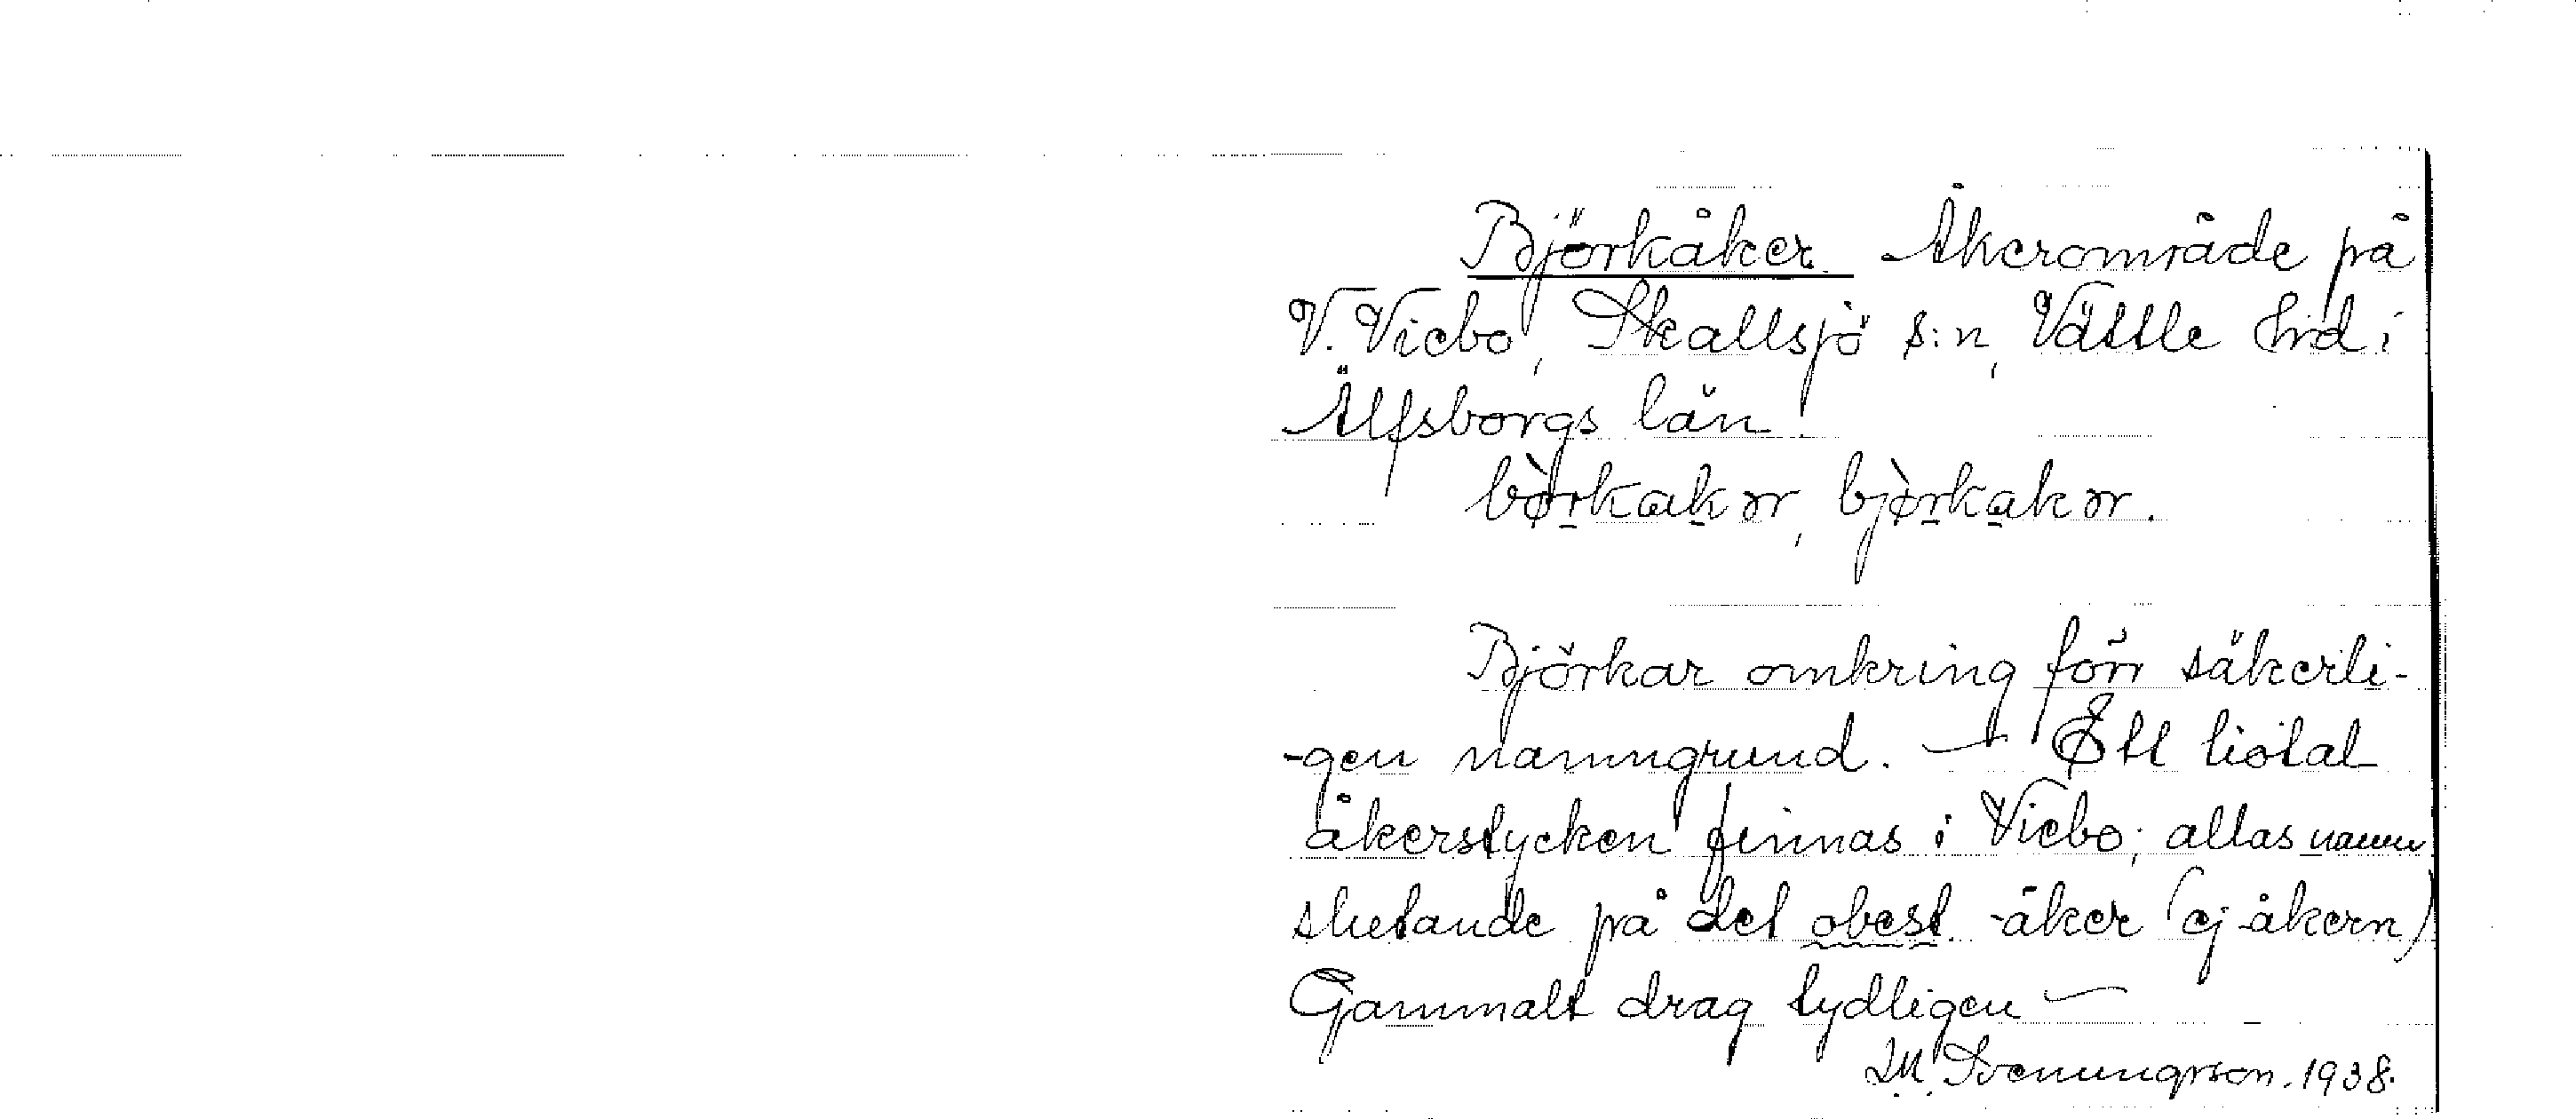 Björkåker. Åkerområde på
V. Viebo, Skallsjö s:n, Vättle hrd i
Älfsborgs län.
bø̀rkakər, bjø̀rkakər.
Björkar omkring förr säkerli-
-gen namngrund. — Ett tiotal
åkerstycken finnas i Viebo; allas namn
slutande på det obest. -åker (ej åkern)
Gammalt drag tydligen —
M. Svenungsson. 1938.